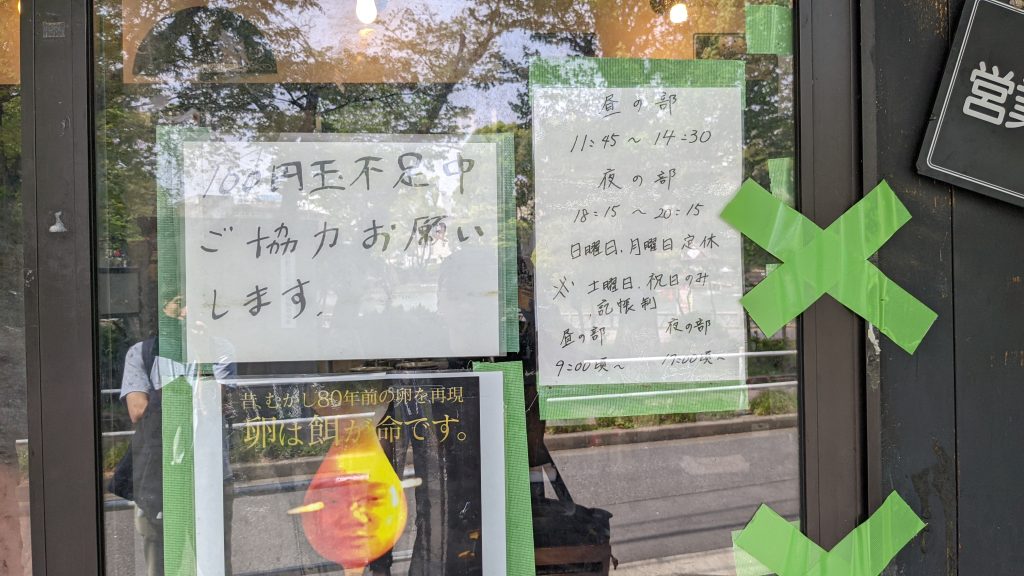 100円玉不足中
ご協力お願い
します.
昼の部
11:45～14:30
夜の部
18:15～20:15
日曜日.月曜日定休
※土曜日.祝日のみ
記帳制
昼の部 夜の部
9:00頃～ 17:00頃～
昔むかし80年前の卵を再現
卵は餌が命です。
営